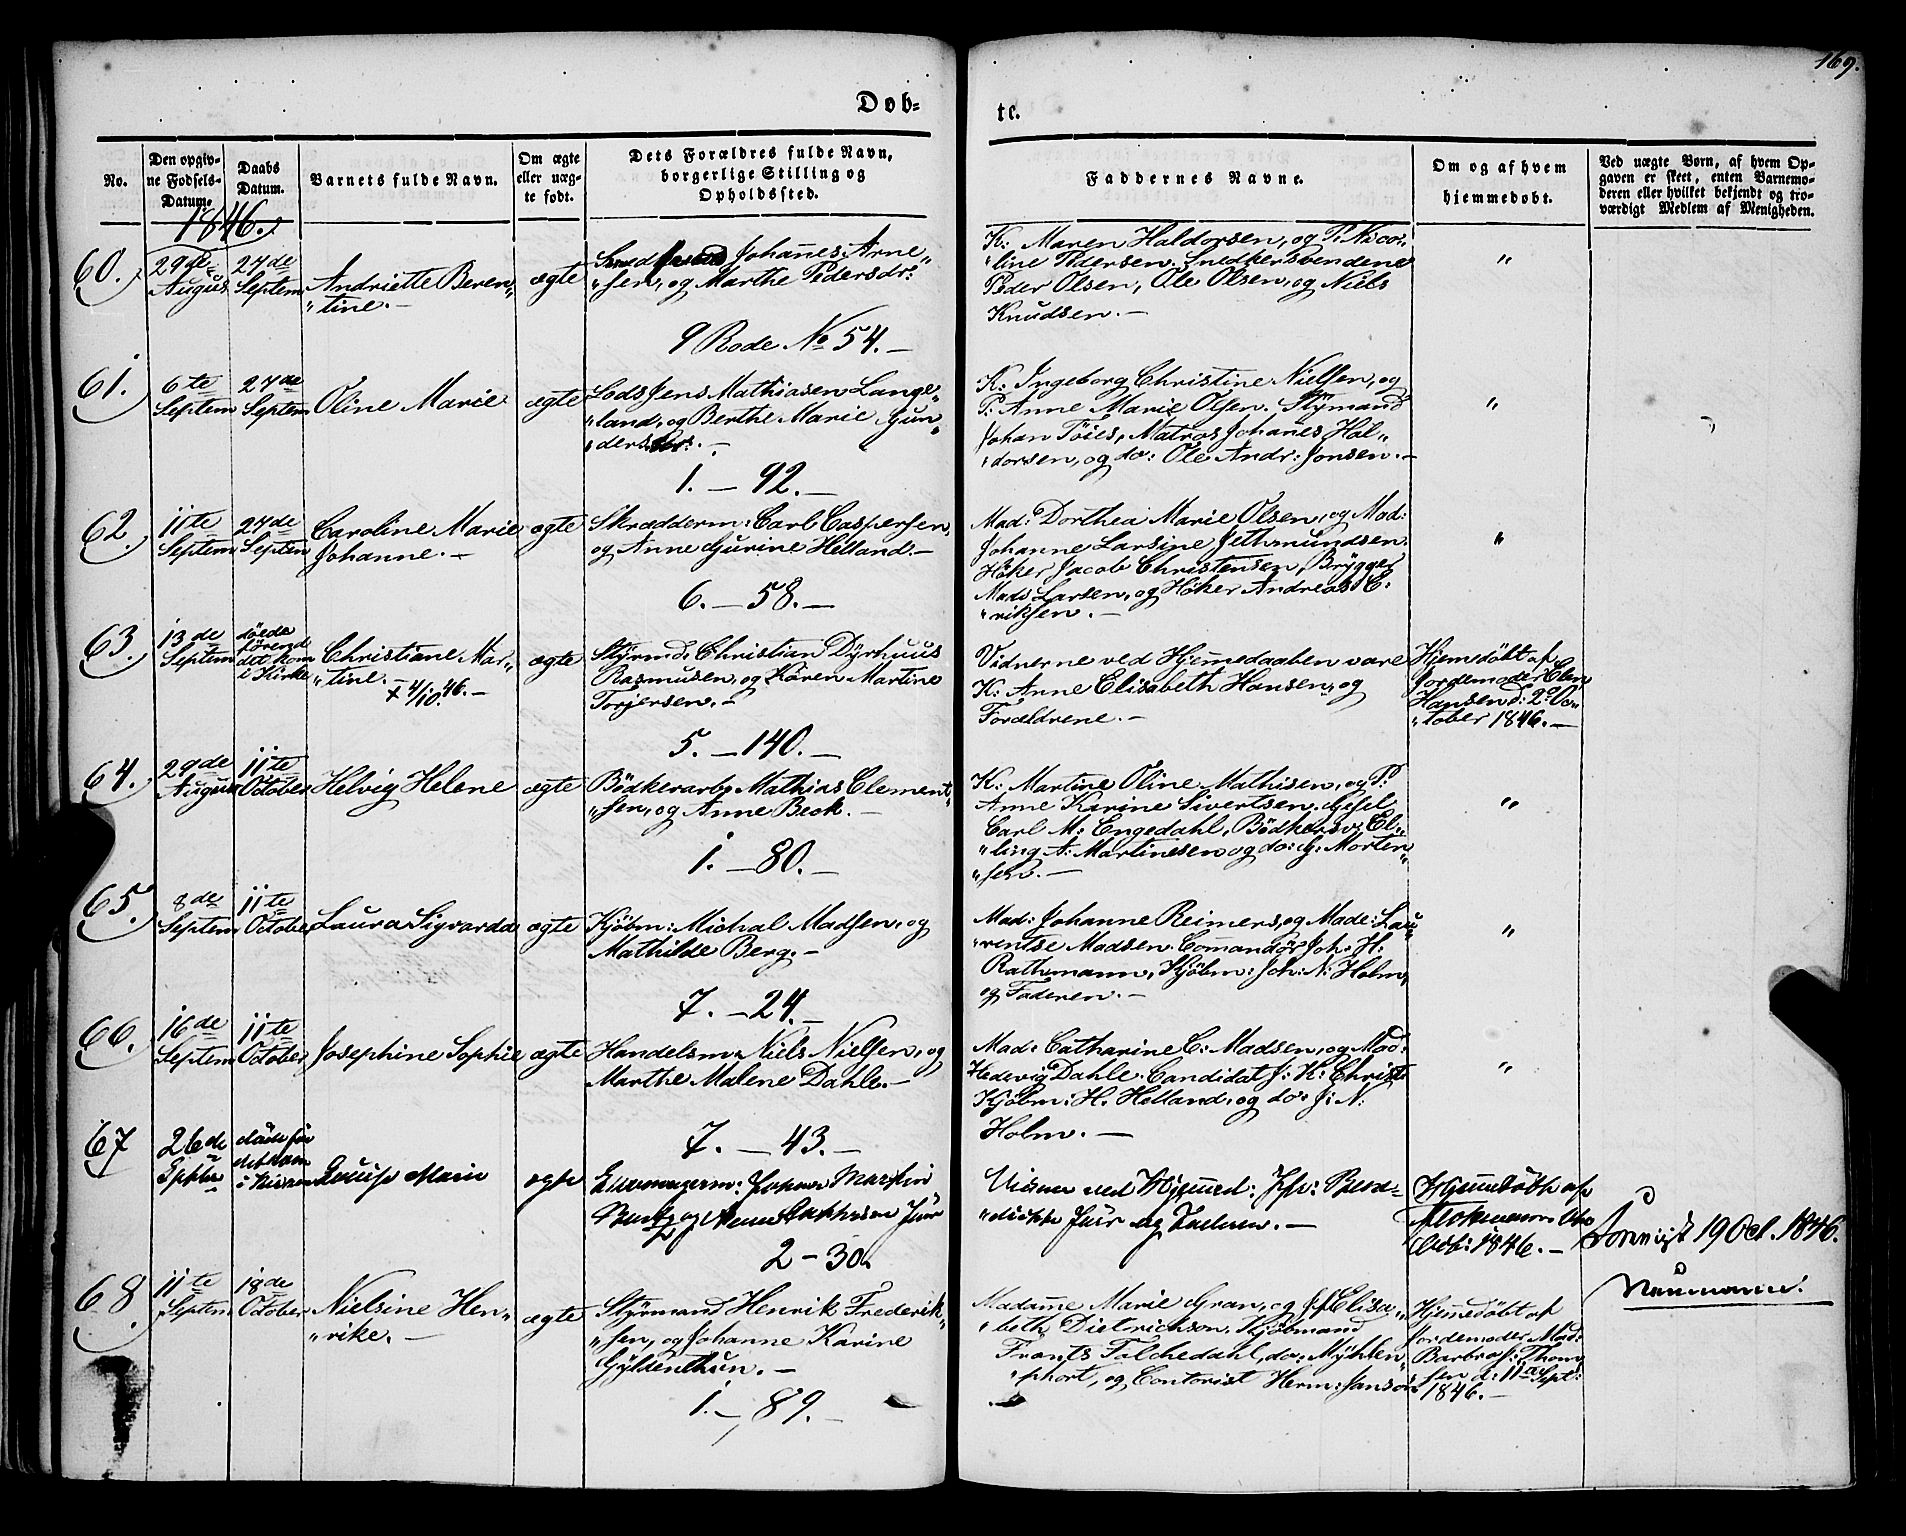 169.
Døb=
te.
No.
Den opgiv-
ne Fødsels-
Datum.
Daabs
Datum.
Barnets fulde Navn.
Om ægte
eller uæg-
te født.
Dets Forældres fulde Navn,
borgerlige Stilling og
Opholdssted.
Faddernes Navne.
Om og af hvem
hjemmedøbt.
Ved uægte Børn, af hvem Op-
gaven er skeet, enten Barnemo-
deren eller hvilket bekjendt og tro-
værdigt Medlem af Menigheden.
1846.
60.
29de
August
27de
Septem
Andriette Beren„
„tine.—
ægte
Smed Johanes Arne„
„sen, og Marthe Pedersdr:
9 Rode No 54.—
K: Maren Haldorsen, og P: Nico„
„line Pedersen. Snedkersvendene
Peder Olsen, Ole Olsen, og Niels
Knudsen.—
„
61.
6te
Septem
27de
Septem
Oline Marie
ægte
Lods Jens Mathiasen Lange„
„land, og Berthe Marie Gun„
„dersdr:.—
1.—92.—
K: Ingeborg Christine Nielsen, og
P: Anne Marie Olsen. Stÿrmand
Johan Töies, Matros Johanes Hal„
„dorsen, og do: Ole Andr: Jonsen.—
„
62.
11te
Septem
27de
Septem
Caroline Marie
Johanne.—
ægte
Skrædderm: Carl Caspersen,
og Anne Gurine Helland.—
6.—58.—
Mad: Dorthea Marie Olsen, og Mad:
Johanne Larsine Jethmundsen.
Höker Jacob Christensen, Brÿgger
Mads Larsen, og Höker Andreas E„
„riksen.—
„
63.
13de
Septem
döede
förend
det kom
i Kirke
Christiane Mar„
„tine.—
+ 4/10. 46.—
ægte
Stÿrmd: Christian Dÿrhuus
Rasmusen, og Karen Martine
Torjersen.—
5.—140.—
Vidnerne ved Hjemedaaben vare
K: Anne Elisabeth Hansen, og
Forældrene.—
Hjemedöbt af
Jordemoder Elen
Hansen d: 2 Oc„
„tober 1846.—
64.
29de
August
11te
October
Helvig Helene
ægte
Bödkerarb: Mathias Clement„
„sen, og Anne Beck.—
1.—80.—
K: Martine Oline Mathisen, og P:
Anne Karine Sivertsen. Gesel
Carl M: Engedahl, Bödkersv: El„
„ling A: Martinesen og do: G: Morten„
„sen.—
„
65.
8de
Septem
11te
October
Laura Sigvarda
ægte
Kjöbm: Michal Madsen, og
Mathilde Berg.—
7.—24.—
Mad: Johanne Reimers, og Made: Lau„
„rentse Madsen. Comandör Joh: H:
Rathmann, Kjöbm: Joh: N: Holm,
og Faderen.—
„
66.
16de
Septem
11te
October
Josephine Sophie
ægte
Handelsm: Niels Nielsen, og
Marthe Malene Dahle.—
7.—43.—
Mad: Catharine C: Madsen, og Mad:
Hedevig Dahle. Candidat J: K: Christi
Kjöbm: H: Helland, og do: J: N:
Holm.—
„
67
26de
Septber
döde för
det kom
i Kirken
Louise Marie
ægte
Johan Martin
og
2–30.
Vidner ved Hjemmed: Jfr: Bene„
„dicte Juer og Faderen.—
Hjemmedöbt af
Octb: 1846.—
19 Oct. 1846.
Neumann.
68.
11te
Septem
18de
October
Nielsine Hen„
„rike.—
ægte
Stÿrmand Henrik Frederik„
„sen, og Johanne Karine
Gÿldenthun.—
1.—89.—
Madame Marie Gran, og Jf Elisa„
„beth Dietrichson. Kjöbmand
Frants Falchedahl, do: Mÿhlen„
„phort, og Contorist Herm: Janson
Hjemedöbt af
Jordemoder Mad:
Barbra J: Thom„
sen d: 11te Sept:
1846.—